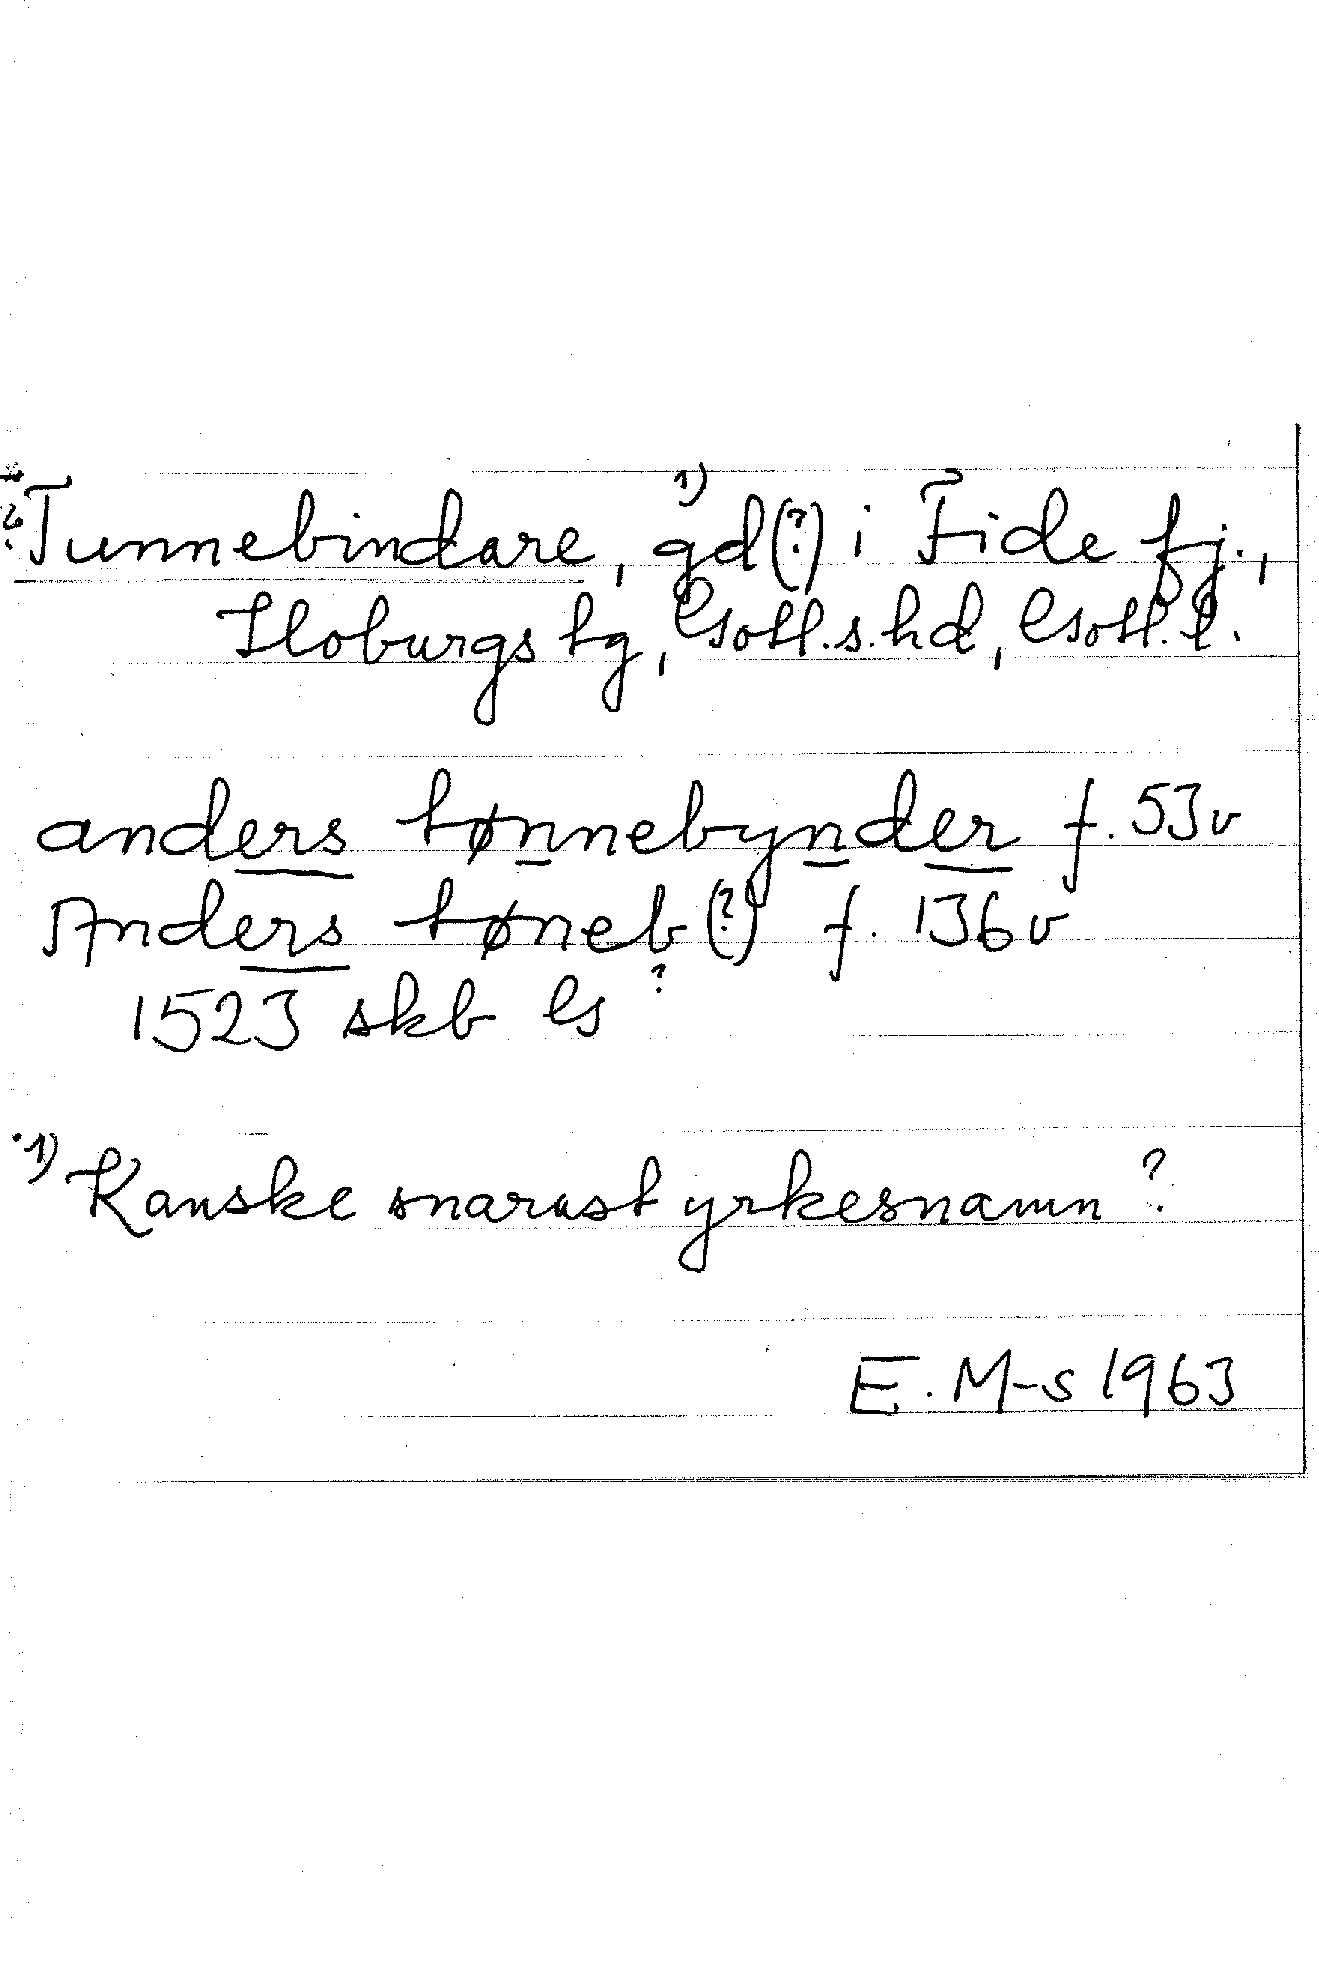 ? Tunnebindare, gd(?)¹⁾ i Fide fj.,
Hoburgs tg, Gotl.s.hd, Gotl.l.
anders tønnebynder f. 53v
Anders tøneb(?) f. 136v
1523 skb G ?
¹⁾ Kanske snarast yrkesnamn ?
E. M-s 1963